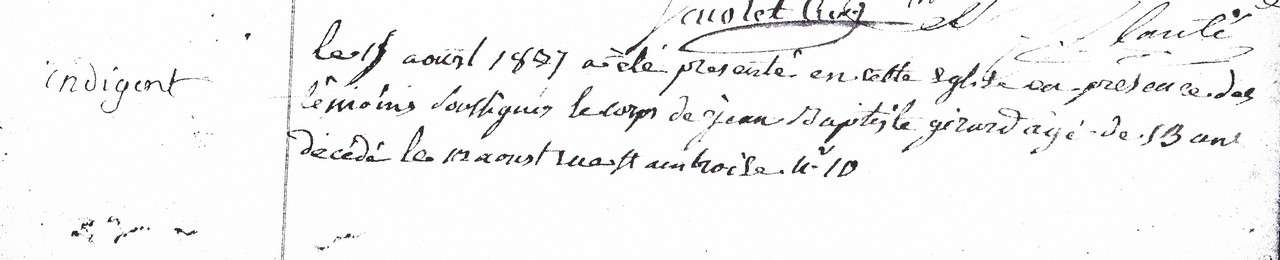 et
indigent
le 15 aoust 1837 a été presenté en cette eglise en presence des
témoins soussignés le corps de jean Baptiste girard agé de 53 ans
décédé le 12 aoust rue st ambroise n° 10